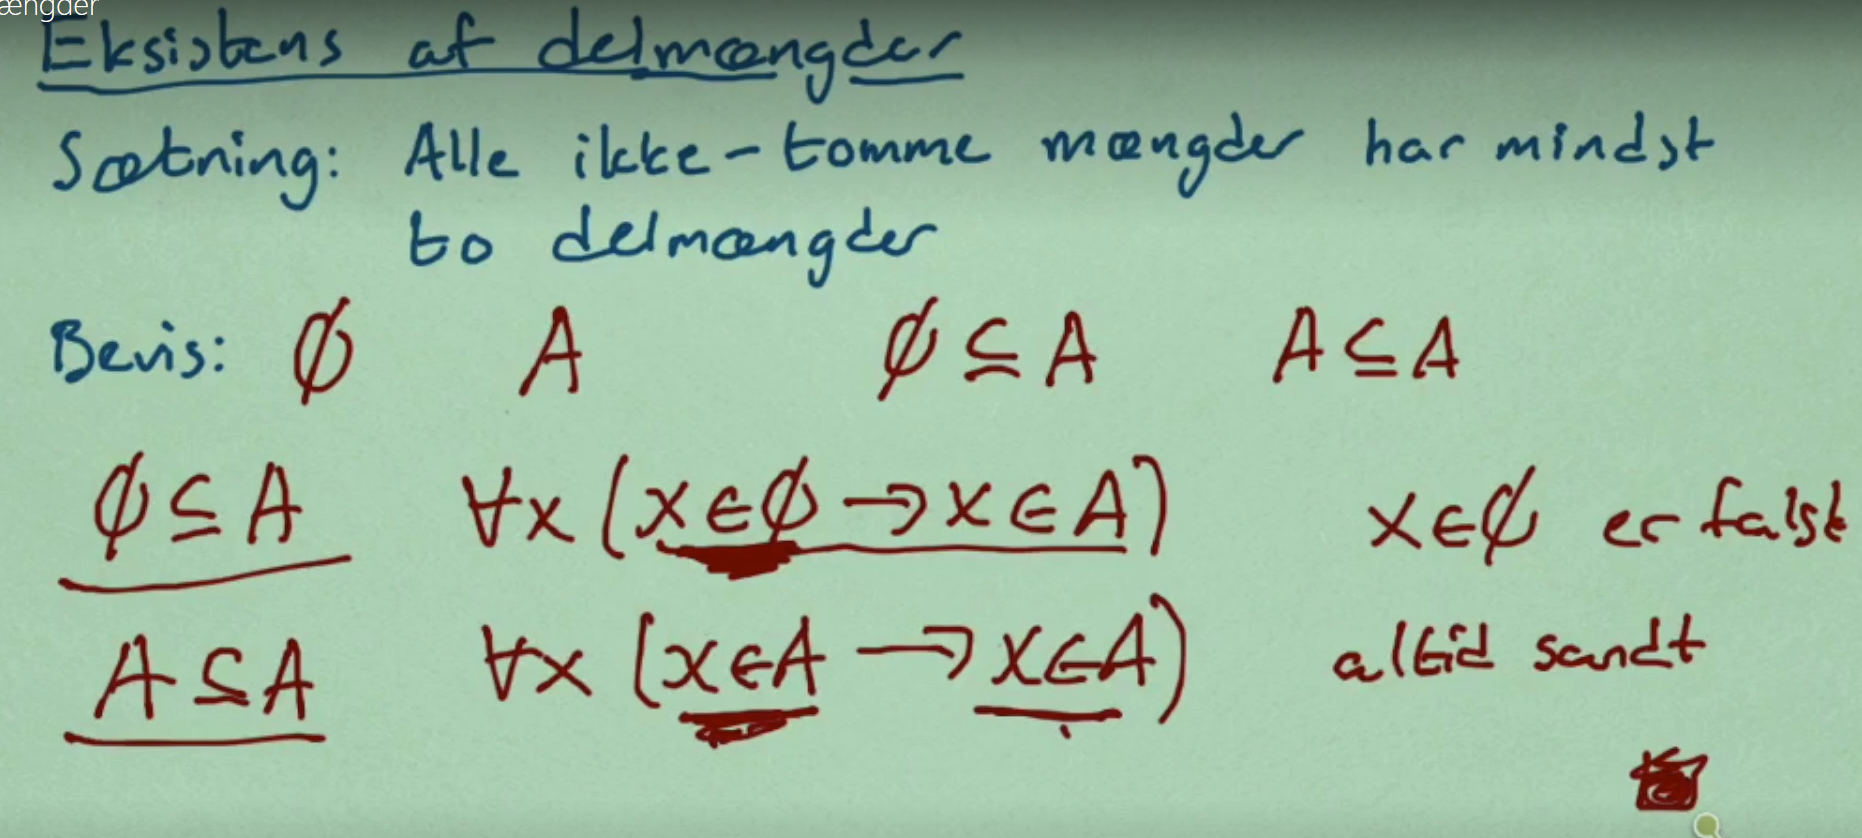 ængder
Eksistens af delmængder
Sætning: Alle ikke-tomme mængder har mindst
to delmængder
Bevis: ∅ A ∅ ⊆ A A ⊆ A
∅ ⊆ A ∀x (x∈∅ → x∈A) x∈∅ er falsk
A ⊆ A ∀x (x∈A → x∈A) altid sandt